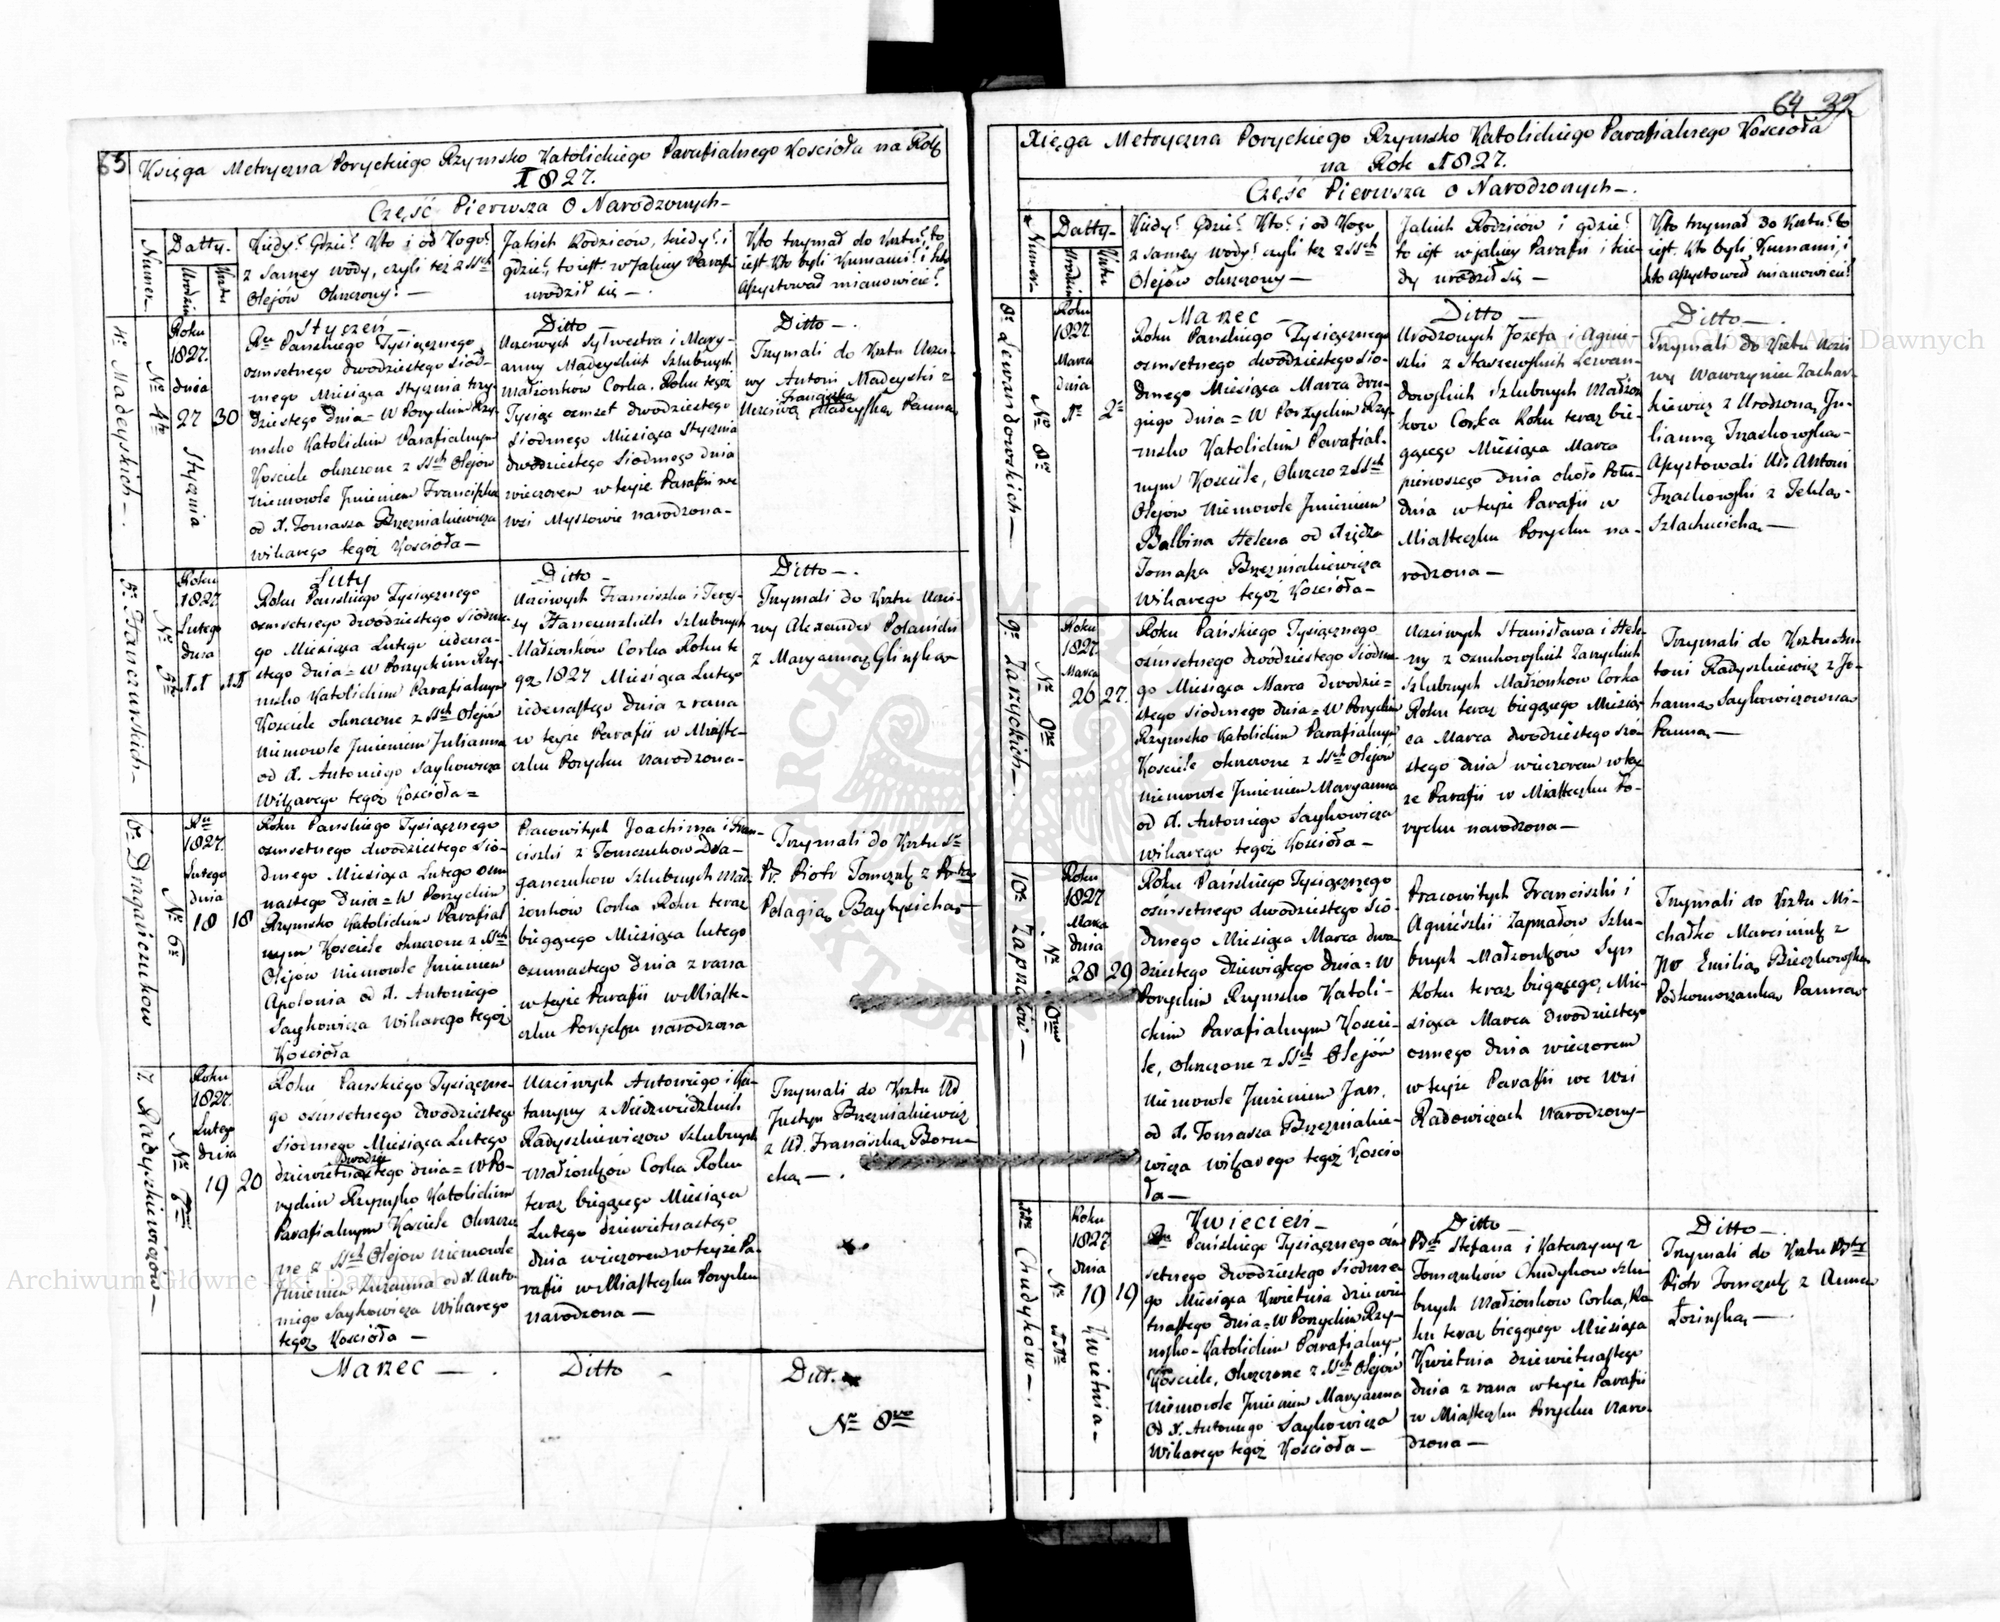 63
Księga Metryczna Poryckiego Rzymsko Katolickiego Parafialnego Kościoła na Rok
1827.
Część Pierwsza o Narodzonych—
Numer
Datty.
Urodzin
Krztu
Kiedy? Gdzie? Kto i od Kogo?
z samey wody, czyli też z SSch
Olejów Okrzczony? —
Jakich Rodziców, kiedy? i
gdzie?, to iest. w Jakiey Parafii
urodził się —.
Kto trzymał do Krztu? to
iest Kto byli Kumami? i kto
assystował mianowicie?
4e Madeyskich —.
No 4to
Roku
1827.
dnia
27 30
Stycznia
Styczeń —
Ru Pańskiego Tysiącznego
ośmsetnego dwódziestego siód-
mego Miesiąca Stycznia trzy-
dziestego dnia = W Poryckim Rzy-
msko Katolickim Parafialnym
Kościele okrzczone z SSch Olejów
Niemowle Jmieniem Franciszka
od X. Tomasza Brzezniakiewicza
Wikarego tegoż Kościoła —
Ditto
Uczciwych Sylwestra i Mary-
anny Madeyskich Szlubnych
Małżonkow Corka. Roku tegoż
Tysiąc ośmset dwódziestego
Siodmego Miesiąca Stycznia
dwódziestego siodmego dnia
wieczorem w teyże Parafii we
wsi Myszowie narodzona —
Ditto —.
Trzymali do Krztu Uczci-
wy Antoni Madeyski z
Franciszka
Uczciwą Madeyską Panną
5e Hanczurskich —
No 5te
Roku
1827
Lutego
dnia
11 11
Luty
Roku Pańskiego Tysiącznego
ośmsetnego dwódziestego siódme-
go Miesiąca Lutego iedena-
stego dnia = W Poryckim Rzy-
msko Katolickim Parafialnym
Kościele okrzczone z SSch Olejów
Niemowle Jmieniem Julianna
od X. Antoniego Saykowicza
Wikarego tegoż Kościoła =
Ditto —
Uczciwych Franciszka i Tere-
sy Hanczurskich Szlubnych
Małżonków Corka Roku te
go 1827 Miesiąca Lutego
iedenastego Dnia z rana
w teyże Parafii w Miaste-
czku Porycku Narodzona —
Ditto —.
Trzymali do Krztu Uczci-
wy Alexander Polanicki
z Maryanną Glińską
6e Draganczukow
No 6te
Ru
1827.
Lutego
dnia
18 18
Roku Pańskiego Tysiącznego
ośmsetnego dwódziestego Siód-
mego Miesiąca Lutego ośm
nastego Dnia = W Poryckim
Rzymsko Katolickim Parafial
nym Kościele okrzczone z SSch
Olejów Niemowle Jmieniem
Apolonia od X. Antoniego
Saykowicza Wikarego tegoż
Kościoła
Pracowitych Joachima i Fran-
ciszki z Tomczukow Dra-
ganczukow Szlubnych Mał-
żonków Corka Roku teraz
bieżącego Miesiąca Lutego
ośmnastego Dnia z rana
w teyże Parafii w Miaste-
czku Porycku narodzona
Trzymali do Krztu
Piotr Tomczuk z
Pelagią
7 Radyszkiewiczow —
No 7me
Roku
1827.
Lutego
dnia
19 20
Roku Pańskiego Tysiączne-
go ośmsetnego dwódziestego
Siodmego Miesiąca Lutego
Dwudzie
dziewietnastego dnia = w Po-
ryckim Rzymsko Katolickim
Parafialnym Kościele Okrzczo-
ne z SSch Olejów Niemowle
Jmieniem Zuzanna od X. Anto-
niego Saykowicza Wikarego
tegoż Kościoła —
Uczciwych Antoniego i Ka-
tarzyny z Niedzwiedzkich
Radyszkiewiczow Szlubnych
Małżonków Corka Roku
teraz bieżącego Miesiąca
Lutego dziewietnastego
Dnia wieczorem w teyże Pa-
rafii w Miasteczku Porycku
narodzona —
Trzymali do Krztu Ud
Justyn Brzezniakiewicz
z Ud. Franciszką Boruc-
ką —.
Marzec —.
Ditto —
Ditt.
No 8vo
64 32
Xięga Metryczna Poryckiego Rzymsko Katolickiego Parafialnego Kościoła
na Rok 1827.
Część Pierwsza o Narodzonych —.
Numer
Datty.
Urodzin
Krztu
Kiedy? Gdzie? Kto? i od Kogo
z samey wody? czyli też z SSch
Olejów okrzczony —
Jakich Rodziców i gdzie?
to iest w jakiey Parafii i kie-
dy urodził się —
Kto trzymał do Krztu? to
iest Kto byli Kumami, i
kto assystował mianowicie?
8e Lewandowskich —
No 8vo
Roku
1827.
Marca
dnia
1o 2o
Marzec —
Roku Pańskiego Tysiącznego
ośmsetnego dwódziestego sió-
dmego Miesiąca Marca dru-
giego dnia = W Poryckim Rzy-
msko Katolickim Parafial-
nym Kościele, Okrzczo z SSch
Olejów Niemowle Jmieniem
Balbina Helena od Xiędza
Tomasza Brzezniakiewicza
Wikarego tegoż Kościoła —
Ditto —
Urodzonych Józefa i Agnie-
szki z Staszewskich Lewan-
dowskich Szlubnych Małżon
kow Corka Roku teraz bie-
żącego Miesiąca Marca
pierwszego dnia około Połu-
dnia w teyże Parafii w
Miasteczku Porycku na-
rodzona —
Ditto —.
Trzymali do Krztu Uczci
wy Wawrzyniec Zachar-
kiewicz z Urodzoną Ju-
lianną Trachowską —
Assystowali Ud. Antoni
Trachowski z Teklą —
Szlachcicką —
9e Zarzyckich —
No 9te
Roku
1827.
Marca
26 27.
Roku Pańskiego Tysiącznego
ośmsetnego dwódziestego siódme-
go Miesiąca Marca Dwodzie-
stego siodmego dnia = W Poryckim
Rzymsko Katolickim Parafialnym
Kościele okrzczone z SSch Olejów
Niemowle Jmieniem Maryanna
od X. Antoniego Saykowicza
Wikarego tegoż Kościoła —
Uczciwych Stanisława i Hele-
ny z Zarzyckich
Szlubnych Małżonkow Corka
Roku teraz bieżącego Miesią-
ca Marca dwodziestego szó-
stego dnia wieczorem w tey-
że Parafii w Miasteczku Po-
rycku narodzona —
Trzymali do Krztu An-
toni Radyszkiewicz z Jo-
hanną Saykowiczowną
Panną —
10e Zapnałów —
No 10me
Roku
1827
Marca
dnia
28 29
Roku Pańskiego Tysiącznego
ośmsetnego dwodziestego Sió-
dmego Miesiąca Marca dwo-
dziestego dziewiątego Dnia = W
Poryckim Rzymsko Katoli-
ckim Parafialnym Koście-
le, Okrzczone z SSch Olejów
Niemowle Jmieniem Jan.
od X. Tomasza Brzezniakie-
wicza Wikarego tegoż Kościo
ła —
Pracowitych Franciszki i
Agnieszki Zapnałow Szlu-
bnych Małżonkow Syn
Roku teraz bieżącego, Mie-
siąca Marca dwodziestego
osmego dnia wieczorem
w teyże Parafii we wsi
Radowiczach Narodzony —
Trzymali do Krztu Mi-
chałko Marciniuk z
JW Emilią Bieczkowską
Podkomorzanką Panną
11e Chudyków —.
No 11o
Roku
1827
dnia
19 19
Kwietnia —
Kwiecień —
Ru Pańskiego Tysiącznego ośm
setnego dwodziestego siodme-
go Miesiąca Kwietnia dziewie-
tnastego dnia = W Poryckim Rzy-
msko — Katolickim Parafialnym
Kościele, Okrzczone z SSch Olejów
Niemowle Jmieniem Maryanna
Od X. Antoniego Saykowicza
Wikarego tegoż Kościoła —
Ditto —
Stefana i Katarzyny z
Tomczuków Chudykow Szlu-
bnych Małżonkow Corka, Ro
ku teraz bieżącego Miesiąca
Kwietnia dziewietnastego
dnia z rana w teyże Parafii
w Miasteczku Porycku Naro-
dzona —
Ditto —.
Trzymali do Krztu
Piotr Tomczuk z Anną
Łozińską —.
Archiwum Główne Akt Dawnych
Archiwum Główne Akt Dawnych